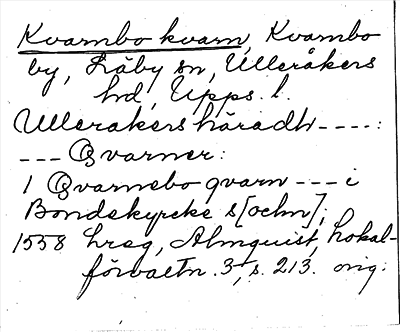 Kvarnbo kvarn, Kvarnbo
by, Läby sn, Ulleråkers
hd, Upps. l.
Ullerakers häradh ----:
--- Qvarner:
1 Qvarnebo qvarn --- i
Bondekyrcke s[ochn],
1558 hreg, Almquist, Lokal-
förvaltn. 3, s. 213. orig.